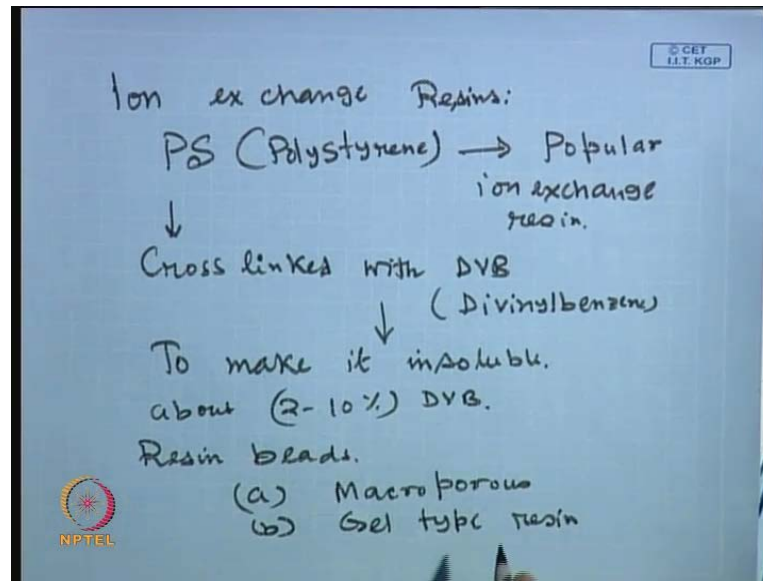 © CET
I.I.T. KGP
Ion exchange Resins:
PS (Polystyrene) → Popular
ion exchange
resin.
↓
Cross linked with DVB
(Divinylbenzene)
↓
To make it insoluble.
about (2-10%) DVB.
Resin beads.
(a) Macroporous
(b) Gel type resin
NPTEL